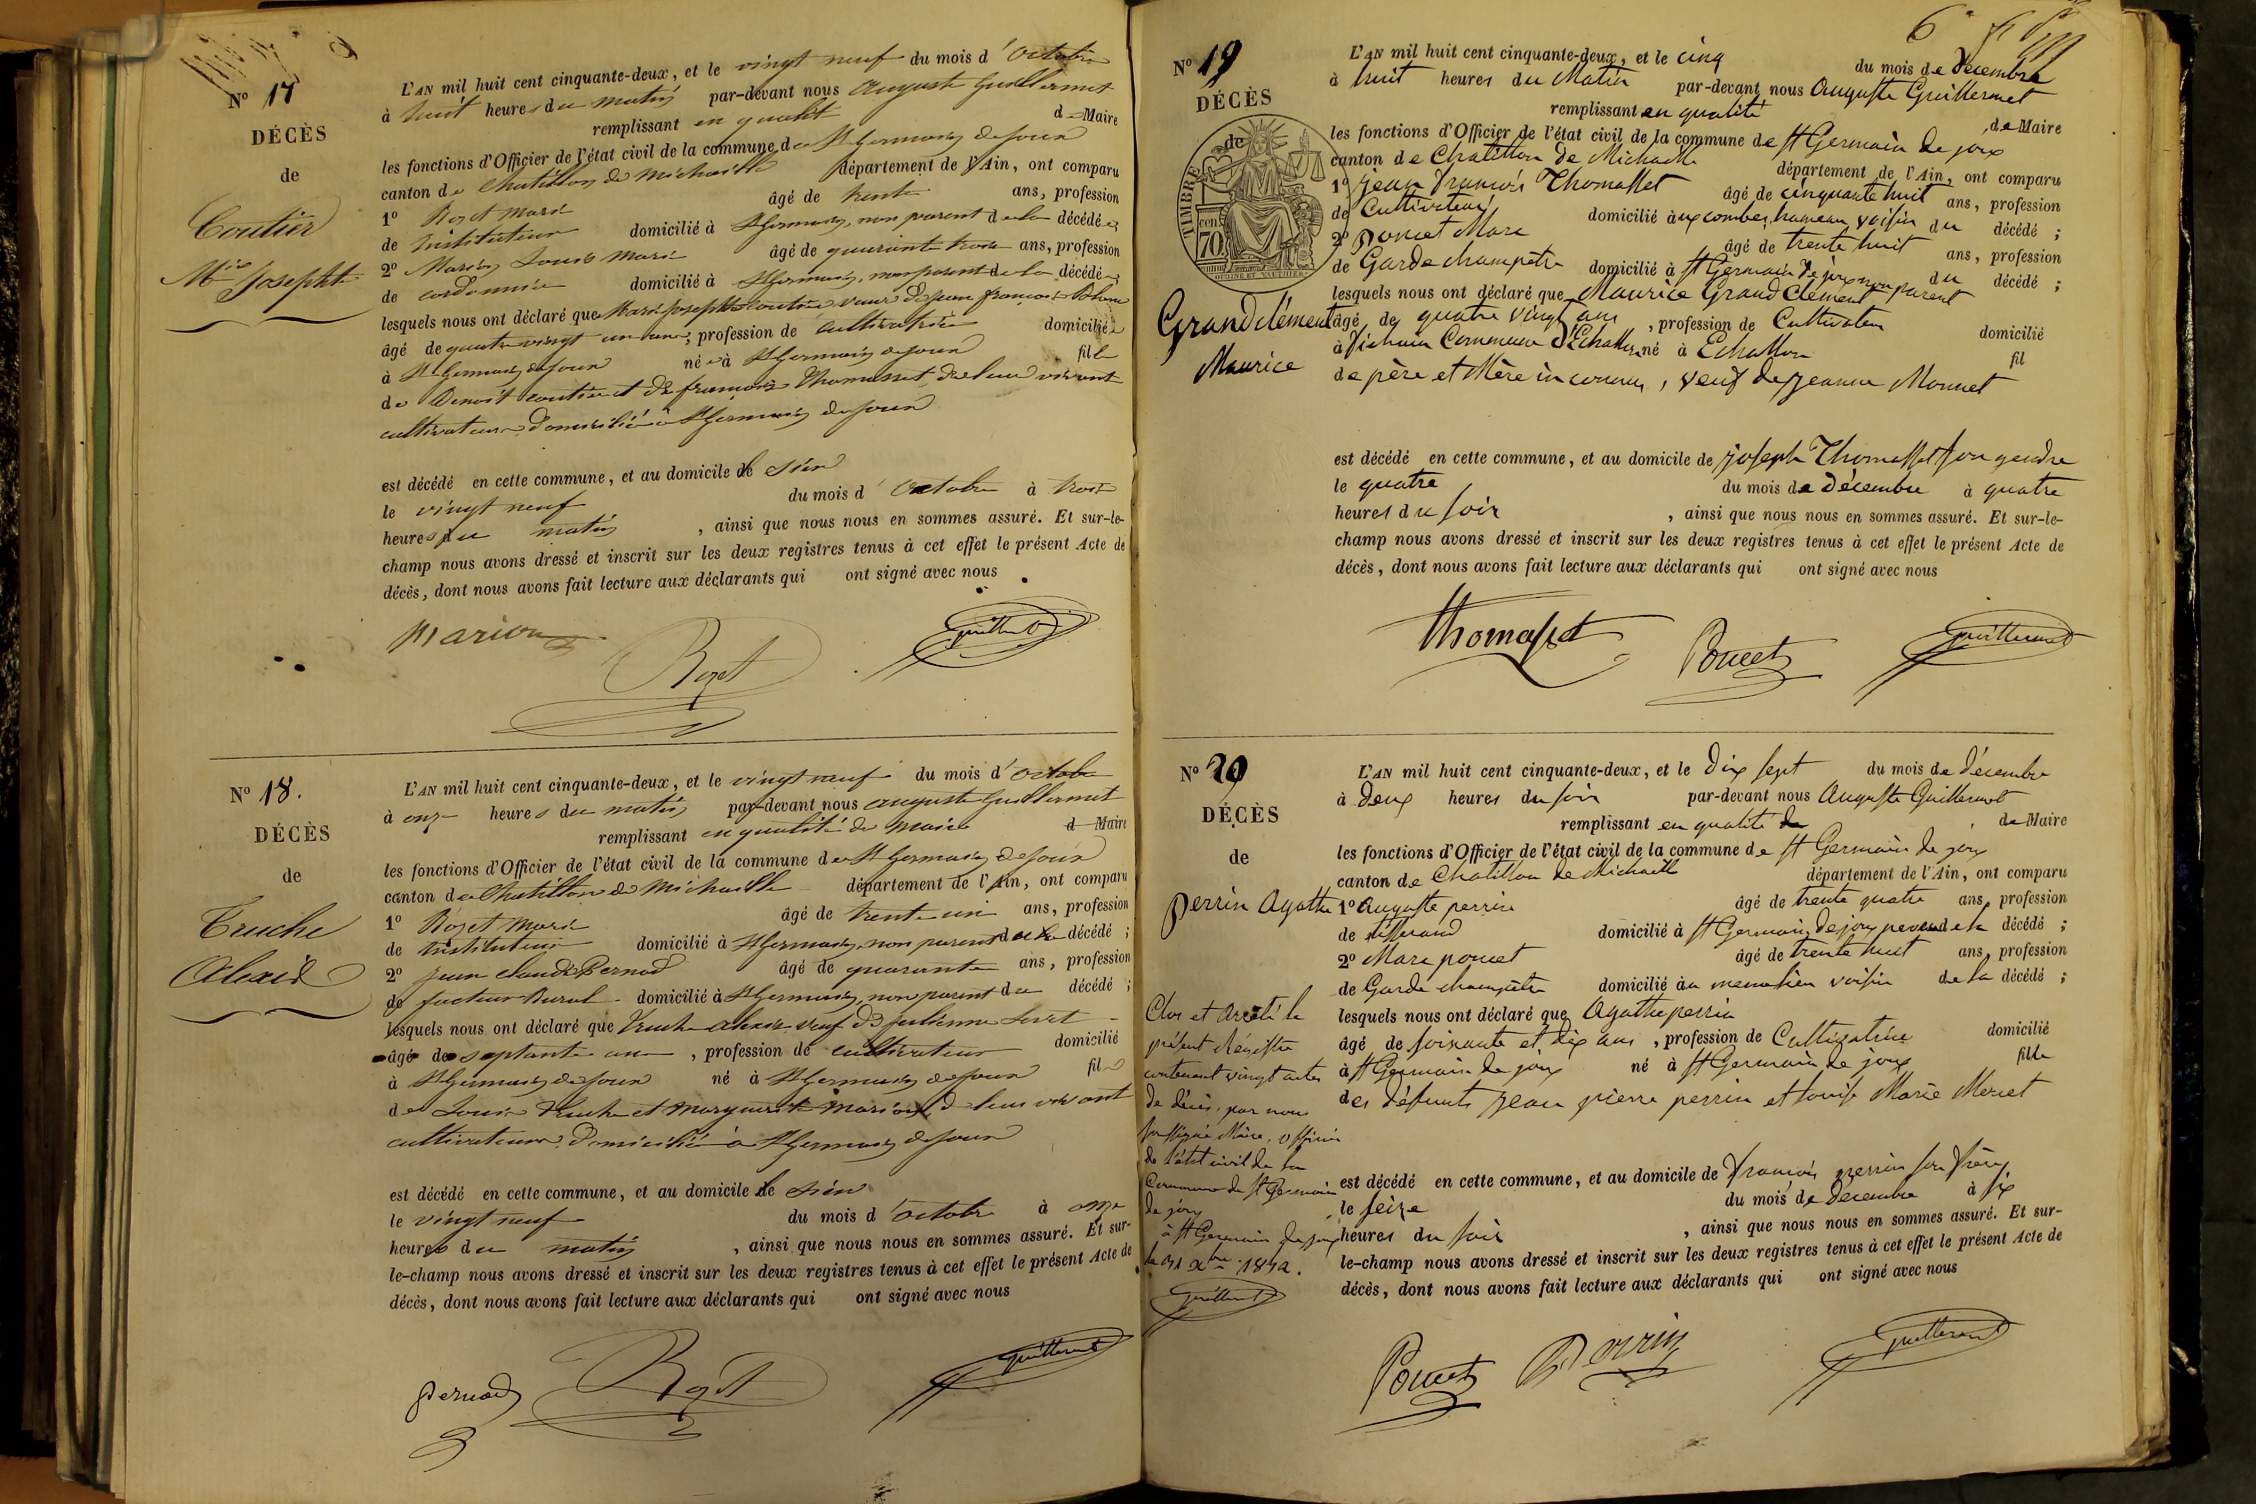 N° 17
DÉCÈS
de
Coutier
Mie Josephte
L'AN mil huit cent cinquante-deux, et le vingt neuf du mois d'Octobre
à huit heures du matin par-devant nous auguste Guillermet
remplissant en qualité d Maire
les fonctions d'Officier de l'état civil de la commune de St Germain de Joux
canton de Chatillon de Michaille département de l'Ain, ont comparu
1° Rozet Marie âgé de trente ans, profession
de instituteur domicilié à St Germain, non parent de la décédée;
2° Marion Louis Marie âgé de quarante trois ans, profession
de cordonnier domicilié à St Germain, non parent de la décédée,
lesquels nous ont déclaré que Marie Josephte Coutier veuve de jean francois
âgé de quatre vingt un ans, profession de cultivatrice domiciliée
à St Germain de Joux née à St Germain de Joux fille
de Benoit Coutier et de françoise Thomasset, de leur vivant
cultivateurs domicilié à St Germain de Joux
est décédé en cette commune, et au domicile le sien
le vingt neuf du mois d'Octobre à trois
heures du matin, ainsi que nous nous en sommes assuré. Et sur-le-
champ nous avons dressé et inscrit sur les deux registres tenus à cet effet le présent Acte de
décès, dont nous avons fait lecture aux déclarants qui ont signé avec nous
Marion
Rozet
Guillermet
N° 18.
DÉCÈS
de
Truche
Alexis
L'AN mil huit cent cinquante-deux, et le vingt neuf du mois d'octobre
à onze heures du matin par-devant nous auguste Guillermet
remplissant en qualité de Maire d Maire
les fonctions d'Officier de l'état civil de la commune de St Germain de Joux
canton de Chatillon de Michaille département de l'Ain, ont comparu
1° Rozet Marie âgé de trente un ans, profession
de instituteur domicilié à St Germain, non parent de la décédé;
2° jean claude Pernod âgé de quarante ans, profession
de facteur Rural domicilié à St Germain, non parent du décédé;
lesquels nous ont déclaré que Truche alexis veuf de julienne
âgé de septante ans, profession de cultivateur domicilié
à St Germain de Joux né à St Germain de Joux fils
de Louis Truche et Marguerite Marion, de leur vivant
cultivateurs domicilié à St Germain de Joux
est décédé en cette commune, et au domicile le sien
le vingt neuf du mois d'octobre à onze
heures du matin, ainsi que nous nous en sommes assuré. Et sur-
le-champ nous avons dressé et inscrit sur les deux registres tenus à cet effet le présent Acte de
décès, dont nous avons fait lecture aux déclarants qui ont signé avec nous
Pernod
Rozet
Guillermet
6
N° 19
DÉCÈS
de
TIMBRE
70 cen
Grandclément
Maurice
L'AN mil huit cent cinquante-deux, et le cinq du mois de Décembre
à huit heures du Matin par-devant nous Auguste Guillermet
remplissant en qualité de Maire
les fonctions d'Officier de l'état civil de la commune de St Germain de joux
canton de Chatillon de Michaille département de l'Ain, ont comparu
1° jean François Thomasset âgé de cinquante huit ans, profession
de Cultivateur domicilié aux combes, hameau voisin du décédé;
2° Poncet Marc âgé de trente huit ans, profession
de Garde champetre domicilié à St Germain de joux non parent du décédé;
lesquels nous ont déclaré que Maurice Grand Clément
âgé de quatre vingt ans, profession de Cultivateur domicilié
à Commune d'Echallon né à Echallon fil
de père et Mère inconnus, veuf de jeanne Monnet
est décédé en cette commune, et au domicile de joseph Thomasset son gendre
le quatre du mois de décembre à quatre
heures du soir, ainsi que nous nous en sommes assuré. Et sur-le-
champ nous avons dressé et inscrit sur les deux registres tenus à cet effet le présent Acte de
décès, dont nous avons fait lecture aux déclarants qui ont signé avec nous
Thomasset
Poncet
Guillermet
N° 20
DÉCÈS
de
Perrin Agathe
L'AN mil huit cent cinquante-deux, et le Dix sept du mois de décembre
à deux heures du soir par-devant nous Auguste Guillermet
remplissant en qualité de de Maire
les fonctions d'Officier de l'état civil de la commune de St Germain de joux
canton de Chatillon de Michaille département de l'Ain, ont comparu
1° Auguste perrin âgé de trente quatre ans, profession
de domicilié à St Germain de joux parent de la décédé;
2° Marc poncet âgé de trente huit ans, profession
de Garde champetre domicilié au meme lieu voisin de la décédé;
lesquels nous ont déclaré que Agathe perrin
âgé de soixante et dix ans, profession de Cultivatrice domicilié
à St Germain de joux né à St Germain de joux fille
des défunts jean pierre perrin et Louise Marie Moret
est décédé en cette commune, et au domicile de François perrin son frère,
le seize du mois de décembre à six
heures du soir, ainsi que nous nous en sommes assuré. Et sur-
le-champ nous avons dressé et inscrit sur les deux registres tenus à cet effet le présent Acte de
décès, dont nous avons fait lecture aux déclarants qui ont signé avec nous
Poncet
Perrin
Guillermet
Clos et Arrêté le
présent Régistre
contenant vingt actes
de décès, par nous
soussigné Maire, officier
de l'état civil de la
Commune de St Germain
de joux
à St Germain de joux
le 31 Xbre 1852.
Guillermet